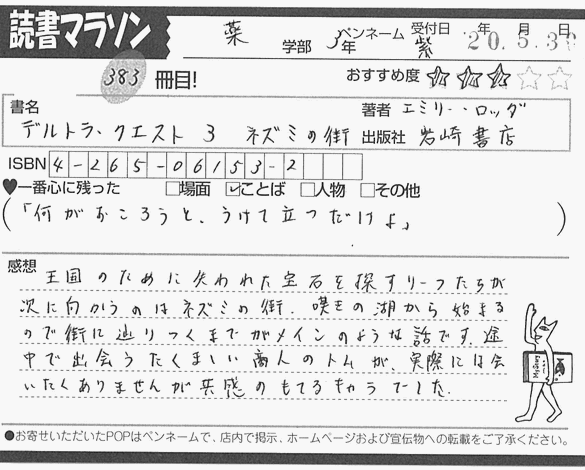 読書マラソン
薬 学部 3年 ペンネーム 紫 受付日 20.5.36 年 月 日
383 冊目! おすすめ度 ★★★☆☆
書名 デルトラ・クエスト 3 ネズミの街
著者 エミリー・ロッダ
出版社 岩崎書店
ISBN 4-265-06153-2
♥一番心に残った □場面 ☑ことば □人物 □その他
(「何がおころうと、うけて立つだけよ」)
感想
王国のために失われた宝石を探すリーフたちが
次に向かうのはネズミの街。嘆きの湖から始まる
ので街に辿りつくまでがメインのような話です。途
中で出会うたくましい商人のトムが、実際には会
いたくありませんが共感のもてるキャラでした。
●お寄せいただいたPOPはペンネームで、店内で掲示、ホームページおよび宣伝物への転載をご了承ください。